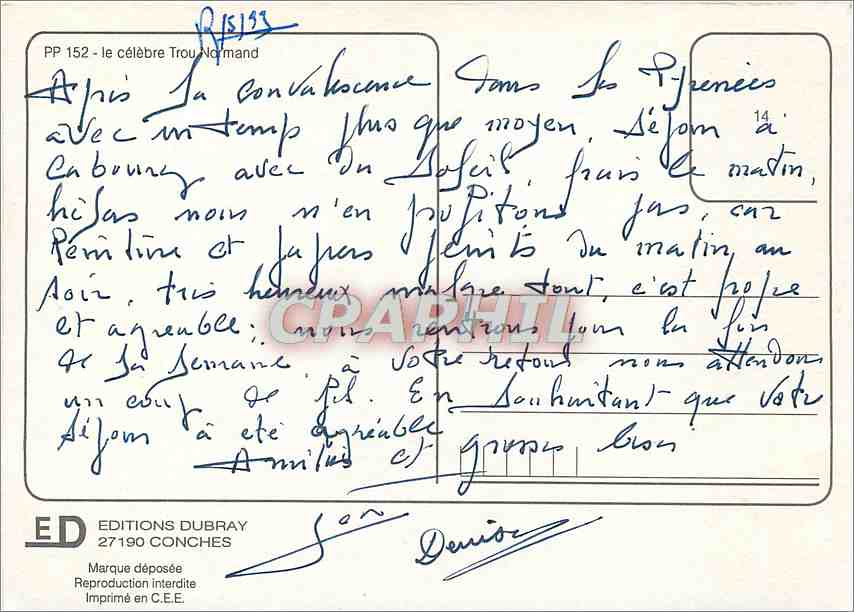 /5/93
PP 152 - le célèbre Trou Normand
Après la convalescence dans les Pyrenées
avec un temp plus que moyen, séjour à
14
Cabourg avec du soleil, frais le matin,
hélas nous n'en profitons pas, car
Peinture et papiers peints du matin au
soir, très heureux malgre tout, c'est propre
et agreable; nous rentrons pour la fin
CPAPHIL
de la semaine, à votre retour nous attendons
un coup de fil. En souhaitant que votre
séjour à été agréable
Amitiés et grosses bises
Jean Denise
ED EDITIONS DUBRAY
27190 CONCHES
Marque déposée
Reproduction interdite
Imprimé en C.E.E.